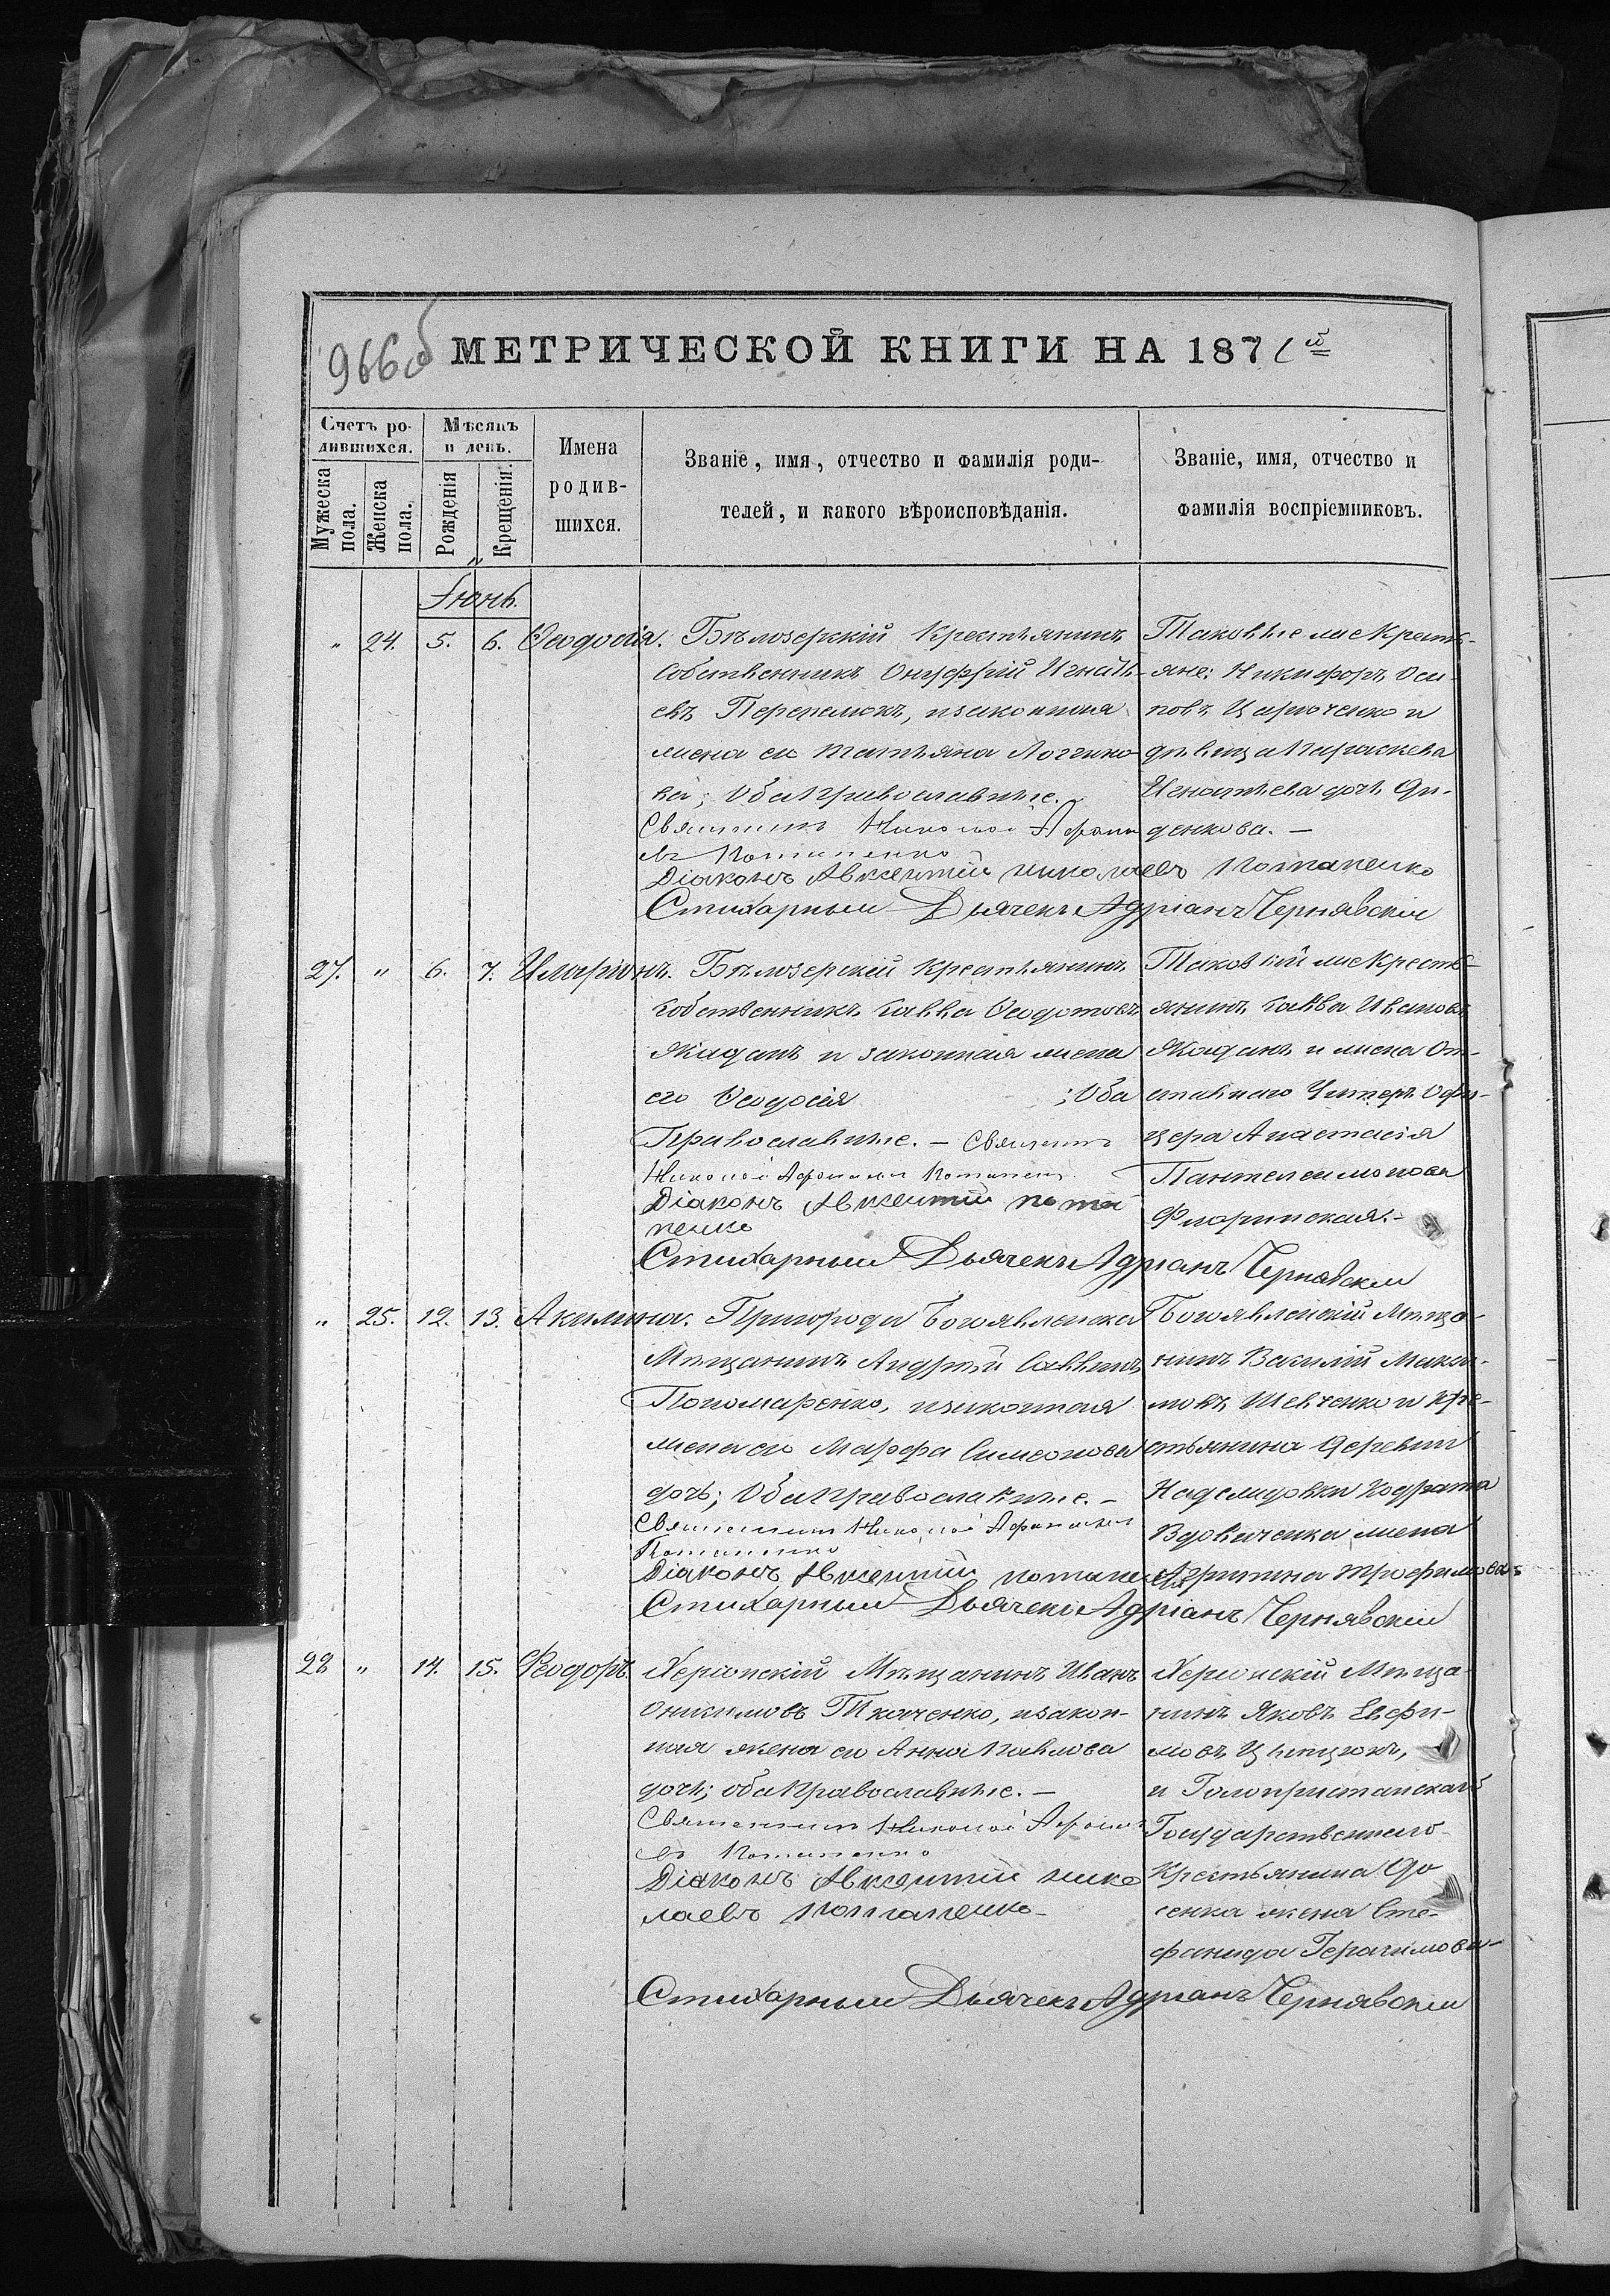 966об
МЕТРИЧЕСКОЙ КНИГИ НА 1871й
Счетъ ро-
дившихся.
Мужеска пола.
Женска пола.
Мѣсяцъ
и день.
Рожденія
Крещенія.
Имена
родив-
шихся.
Званіе, имя, отчество и фамилія роди-
телей, и какого вѣроисповѣданія.
Званіе, имя, отчество и
фамилія воспріемниковъ.
Іюнь.
" 24. 5. 6. Ѳеодосія.
Бѣлозерскій Крестьянинъ
Собственникъ Онуффрій Игнать-
евъ Перепелюкъ, и законная
жена его Татьяна Логгино-
ва; Оба Православные.
Священникъ Николай Афанась
евъ Потапенко
Діаконъ Авксентій Николаевъ Потапенко
Стихарный Дьячекъ Адріанъ Чернявскій
Таковые же Кресть-
яне: Никифоръ Оси-
повъ Царюченко и
дѣвица Параскева
Игнатьева дочь Ди-
денкова. —
27. " 6. 7. Иларіонъ.
Бѣлозерскій Крестьянинъ
Собственникъ Савва Ѳеодотовъ
Жаданъ и законная жена
его Ѳеодосія ; Оба
Православные. — Священникъ
Николай Афанасьевъ Потапенко
Діаконъ Авксентій Пота
пенко
Стихарный Дьячекъ Адріанъ Чернявскій
Таковый же Кресть-
янинъ Савва Ивановъ
Жаданъ и жена От-
ставнаго Унтеръ Офи-
цера Анастасія
Пантелеимонова
Флоринская. —
" 25. 12. 13. Акилина.
Пригорода Богоявленска
Мѣщанинъ Андрей Саввинъ
Пономаренко, и законная
жена его Марфа Симеонова
дочь; Оба Православные. —
Священникъ Николай Афанасьевъ
Потапенко
Діаконъ Авксентій Потапенко
Стихарный Дьячекъ Адріанъ Чернявскій
Богоявленскій Мѣща-
нинъ Василій Макси-
мовъ Шевченко и Кре-
стьянина Деревни
Кодрата
Вдовиченка жена
Агрипина Трофимова.
28 " 14. 15. Феодоръ.
Херсонскій Мѣщанинъ Иванъ
Онисимовъ Ткаченко, и закон-
ная жена его Анна Павлова
дочь; оба Православные. —
Священникъ Николай Афанась
евъ Потапенко
Діаконъ Авксентій Нико
лаевъ Потапенко
Стихарный Дьячекъ Адріанъ Чернявскій
Херсонскій Мѣща-
нинъ Яковъ Евфи-
мовъ
и Голопристанскаго
Государственнаго
Крестьянина До
сенка жена Сте-
фанида Герасимова